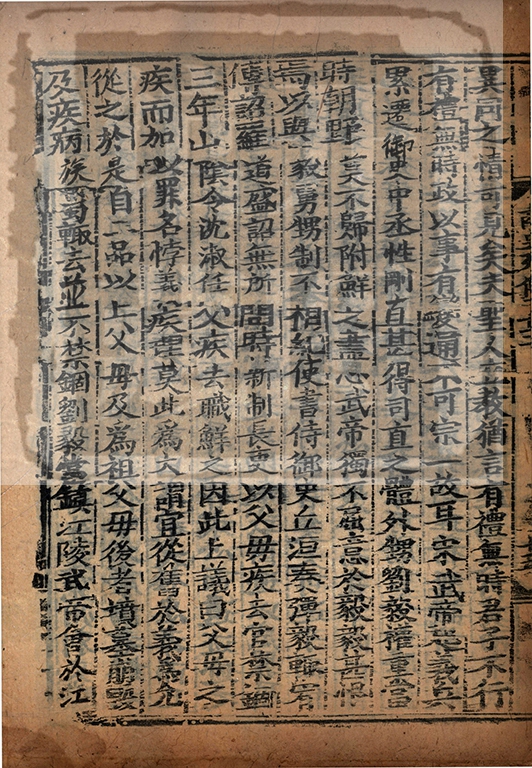 異同之情可見矣夫聖人立教猶言有禮無時君子不行
有禮無時政以事有變通不可宗一故耳宋武帝起義兵
累遷御史中丞性剛直甚得司直之體外甥劉毅權重當
時朝野莫不歸附鮮之盡心武帝獨不屈意於毅毅甚恨
焉以與毅舅甥制不相糾使書侍御史丘洹奏彈毅輒宥
傳詔羅道盛詔無所問時新制長吏以父母疾去官禁錮
三年山陰令沈淑任父疾去職鮮之因此上議曰父母之
疾而加以罪名悖義疾理莫此為大謂宜從舊於義為允
從之於是自二品以上父母及為祖父母後者墳墓崩毀
及疾病族屬輒去並不禁錮劉毅當鎮江陵武帝會於江